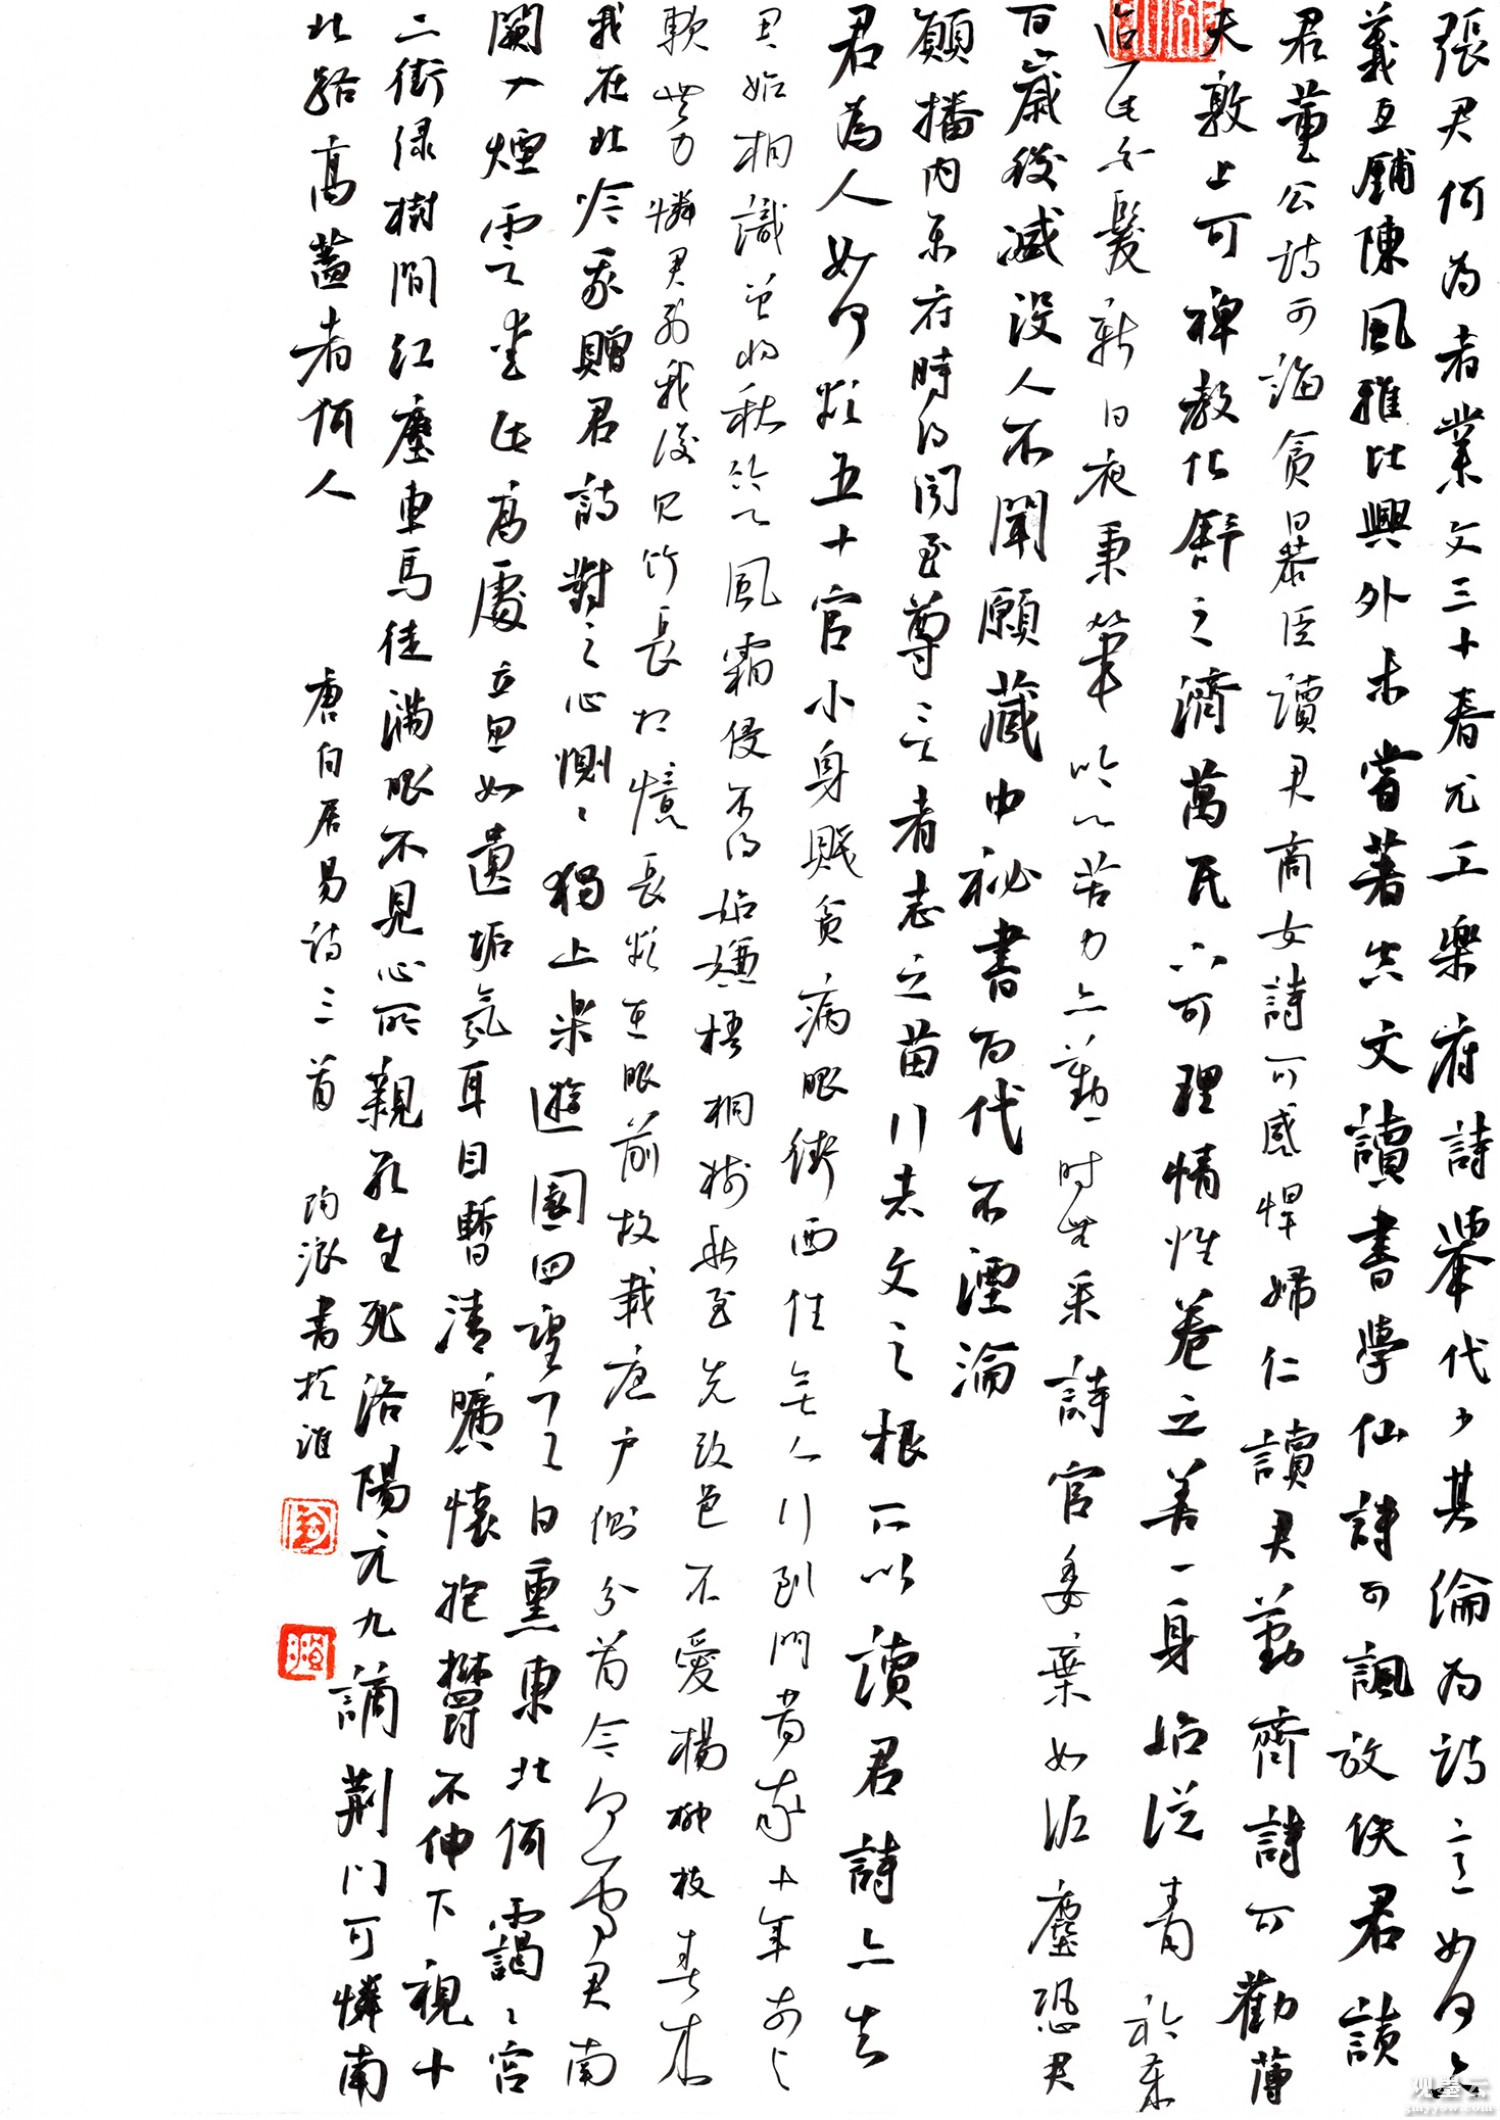 張君何为者業文三十春尤工樂府詩舉代少其倫为詩意如何六
義互鋪陳風雅比興外未嘗著空文讀書學仙詩可諷放佚君讀
君董公詩可誨貪暴臣讀君商女詩可感悍婦仁讀君勤齊詩可勸薄
夫敦上可裨教化舒之濟萬民下可理情性卷之善一身始従青衿歲
迨此白髮新日夜秉筆吟心苦力亦勤時無采詩官委棄如泥塵恐君
百歲後滅没人不聞願藏中秘書百代不湮淪
願播内乐府時得聞至尊言者志之苗行者文之根所以讀君詩亦知
君為人如何欲五十官小身賤貧病眼街西住無人行到門昔我十年前与
君始相識曾将秋竹竿風霜侵不得始嫌梧桐樹秋至先改色不愛楊柳枝春来
軟無力憐君别我後見竹長相憶長欲在眼前故栽庭户側分首今何處君南
我在北吟我贈君詩對之心惻々獨上樂遊園四望天日曛東北何靄々宫
闕入煙雲愛此高處立忽如遺垢氛耳目暫清曠懷抱鬱不伸下視十
二街绿樹間红塵車馬徒满眼不見心所親孔生死洛陽元九謫荆门可憐南
北路高蓋者何人 唐白居易詩三首 陶浪書於淮